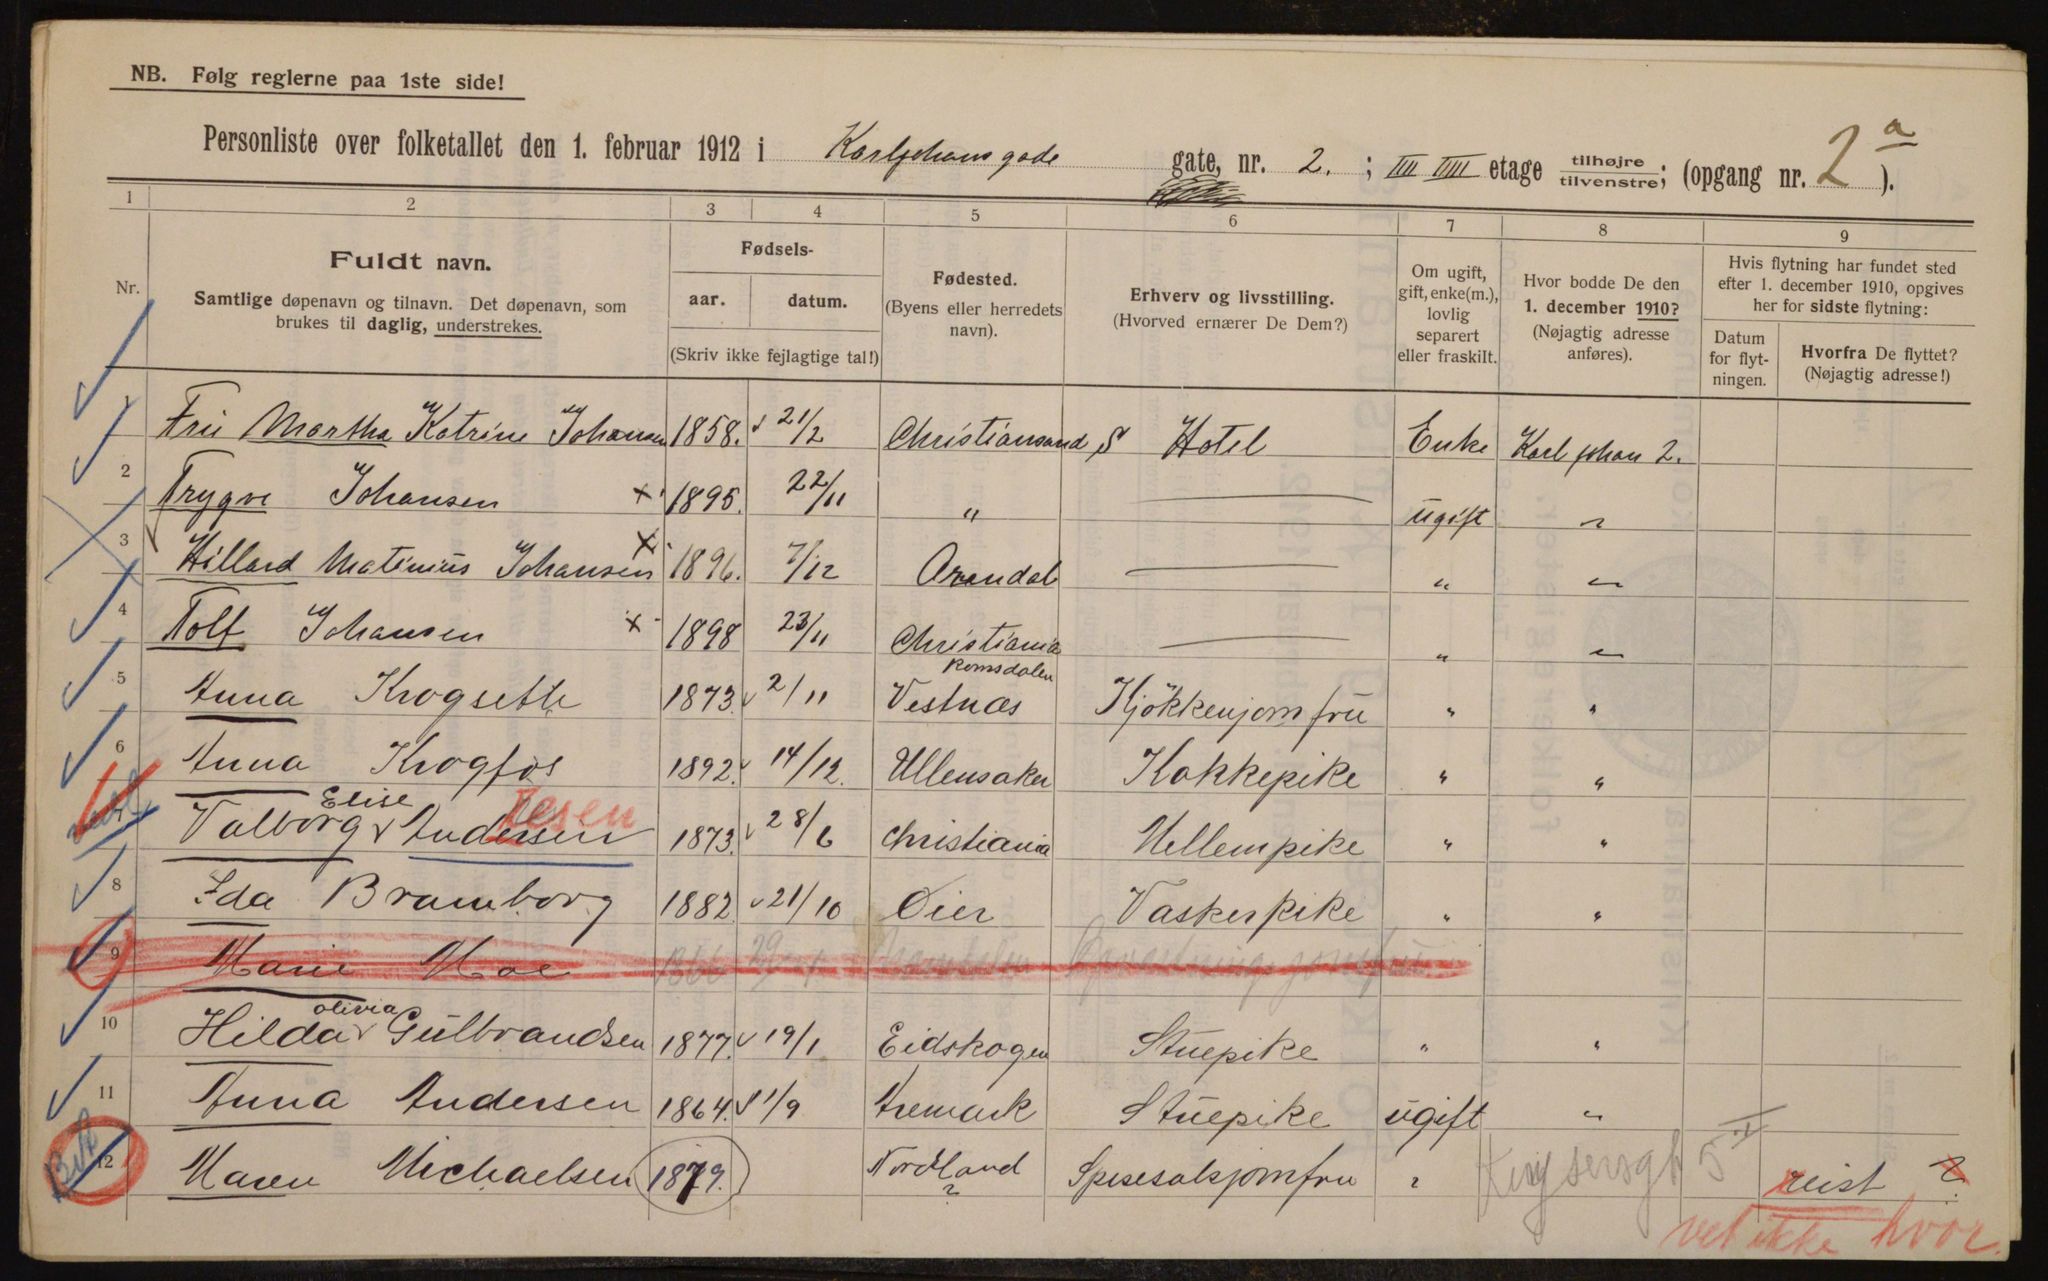 NB. Følg reglerne paa 1ste side!
Personliste over folketallet den 1. februar 1912 i Karljohansgade gate, nr. 2. ; III IIII etage tilhøjre / tilvenstre; (opgang nr. 2 a ).
1 2 3 4 5 6 7 8 9
Nr.
Fuldt navn.
Samtlige døpenavn og tilnavn. Det døpenavn, som
brukes til daglig, understrekes.
Fødsels-
aar. datum.
(Skriv ikke fejlagtige tal!)
Fødested.
(Byens eller herredets
navn).
Erhverv og livsstilling.
(Hvorved ernærer De Dem?)
Om ugift,
gift, enke(m.),
lovlig
separert
eller fraskilt.
Hvor bodde De den
1. december 1910?
(Nøjagtig adresse
anføres).
Hvis flytning har fundet sted
efter 1. december 1910, opgives
her for sidste flytning:
Datum
for flyt-
ningen.
Hvorfra De flyttet?
(Nøjagtig adresse!)
1 Fru Martha Katrine Johansen 1858. 21/2 Christiansand S Hotel Enke Karl Johan 2.
2 Trygve Johansen x 1895. 22/11 " — ugift "
3 Hillard Matinius Johansen x 1896. 7/12 Arendal — " "
4 Rolf Johansen x 1898 23/11 Christiania — " "
Romsdalen
5 Anna Krogsette 1873. 2/11 Vestnæs Kjökkenjomfru " "
6 Anna Krogfos 1892. 14/12. Ullensaker Kokkepike " "
Elise
7 Valborg Andersen 1873. 28/6 Christiania Mellempike " "
8 Ida Bramborg 1882 21/10 Öier Vaskerpike " "
9 Marie Moe 1866
olivia
10 Hilda Gulbrandsen 1877. 19/1 Eidskogen Stuepike " "
11 Anna Andersen 1864. 1/9 Aremark Stuepike ugift "
12 Maren Michaelsen 1879. Nordland ? Spisesalsjomfru " reist ?
vet ikke hvor.